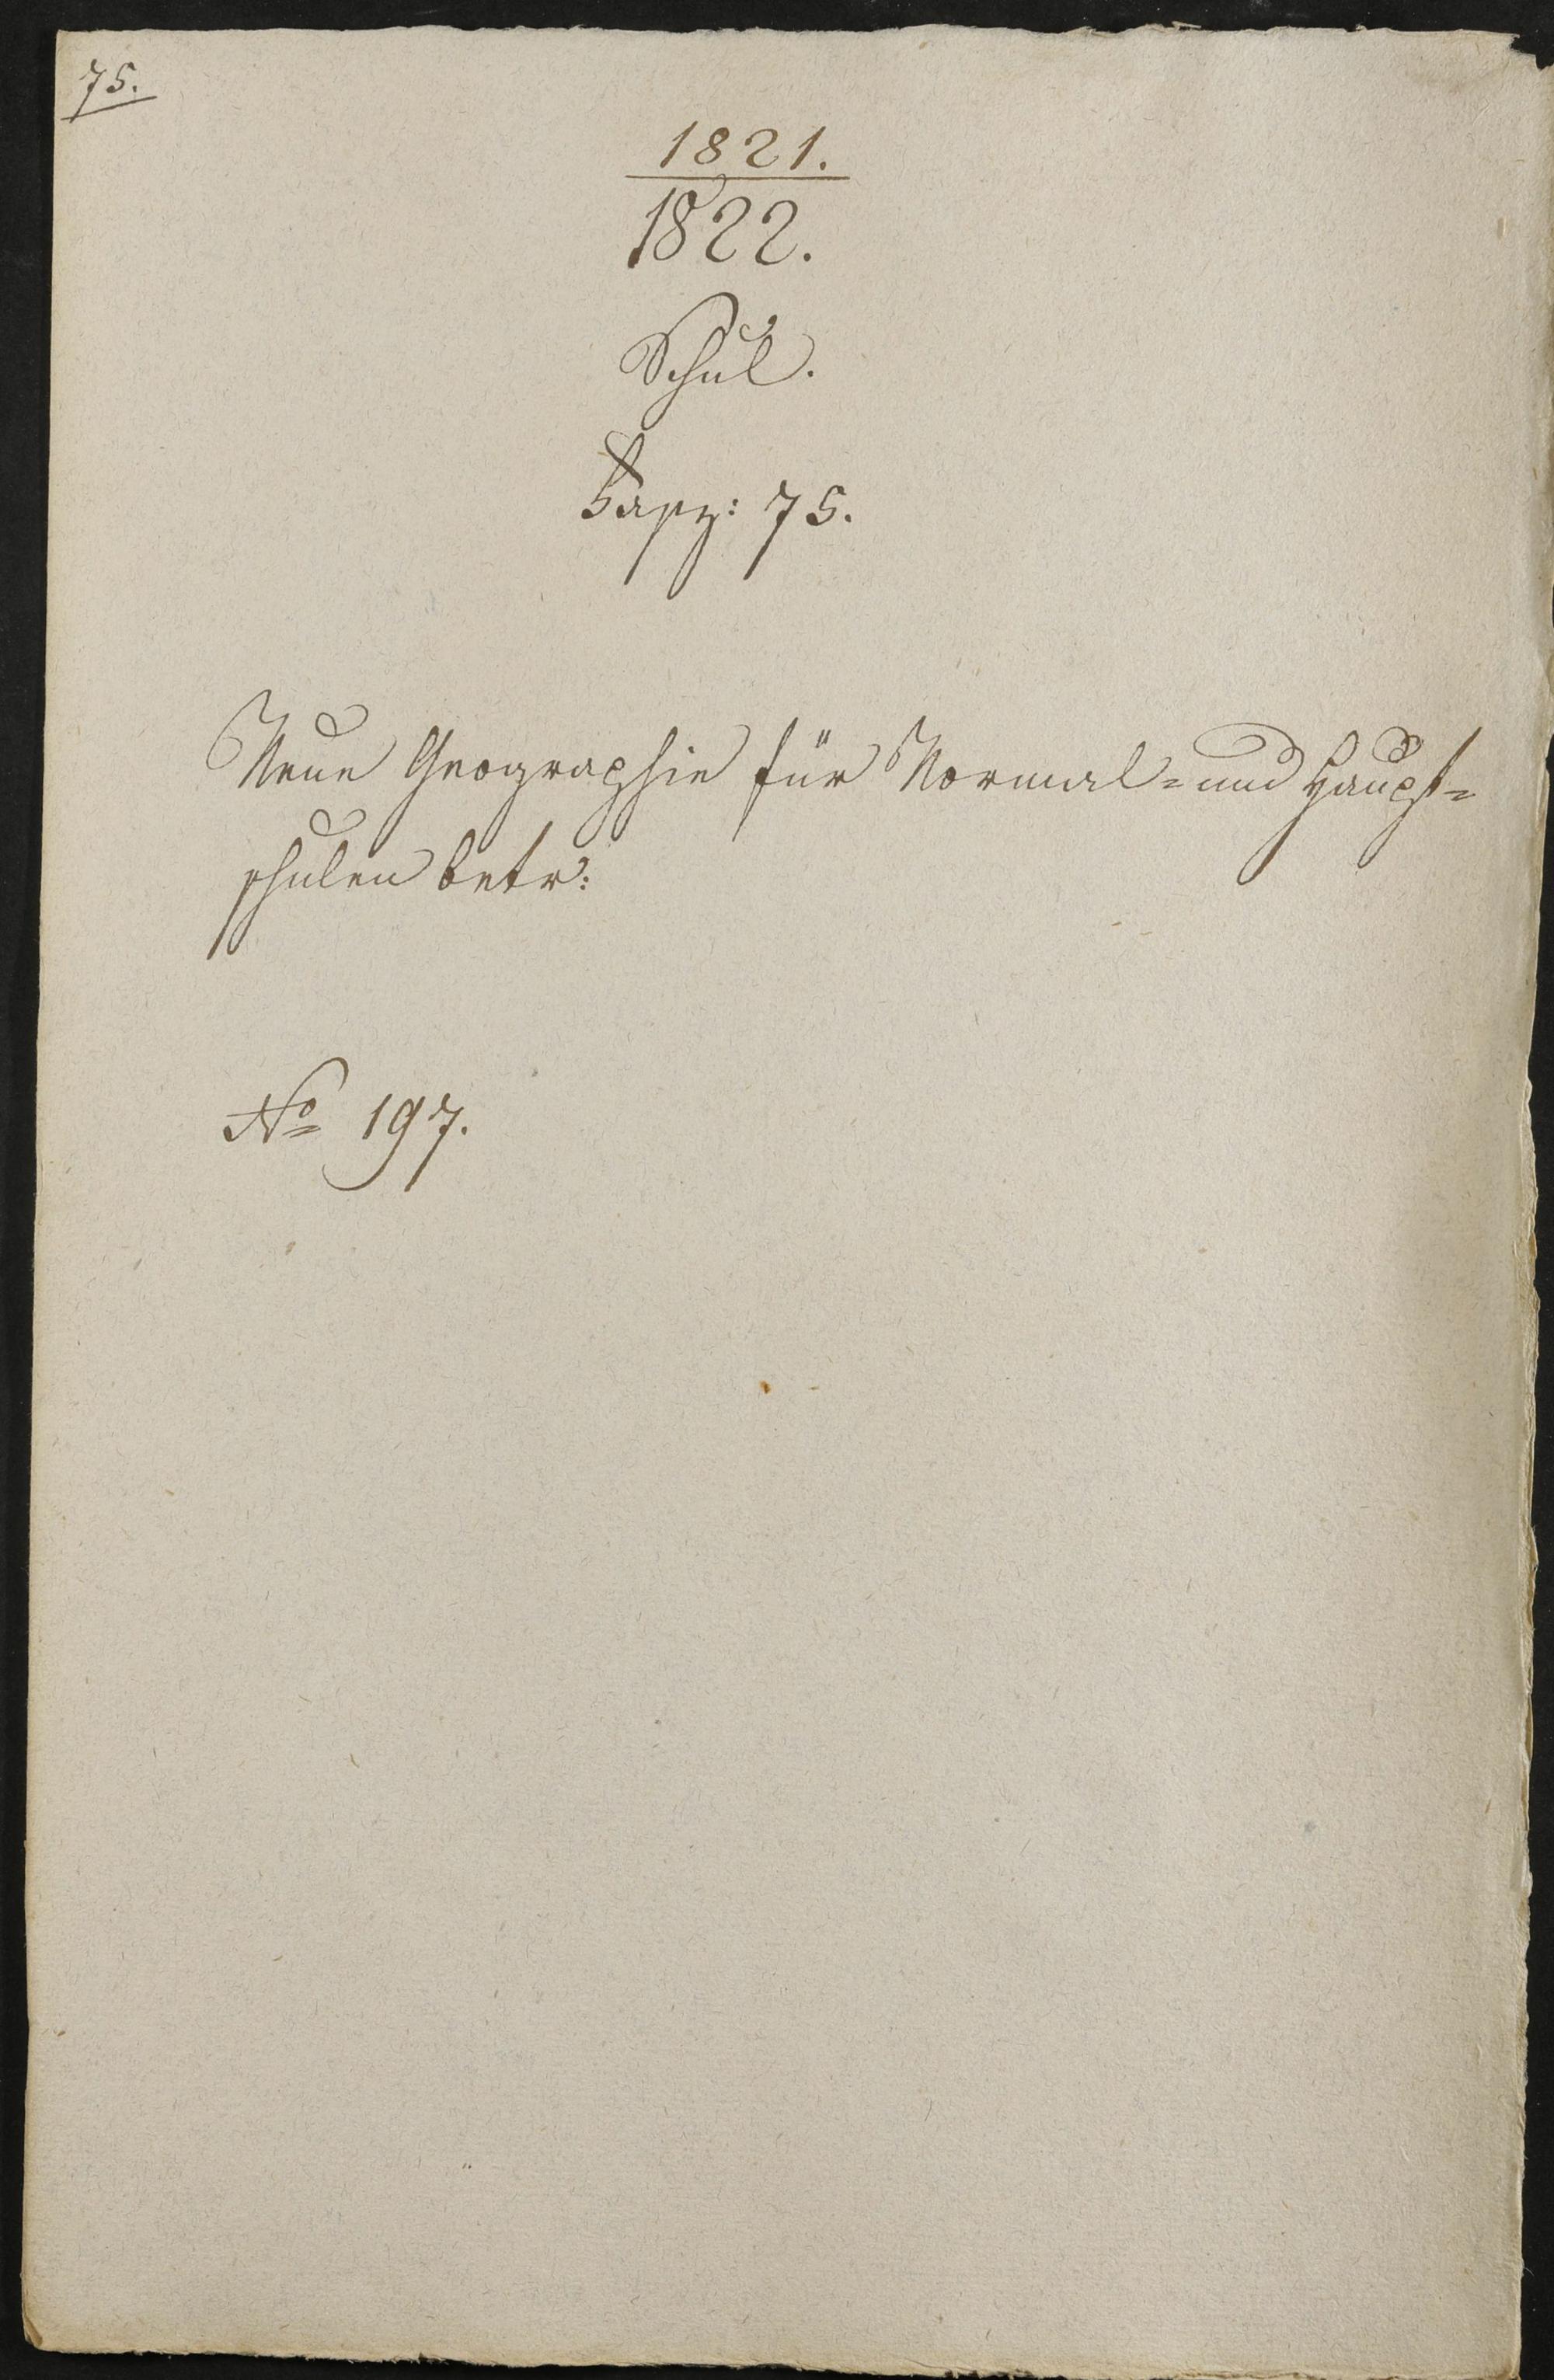 75.
1821.
1822.
Schul.
Fasz: 75.
Neue Geographie für Normal- und Haupt-
schulen betr:
No 197.